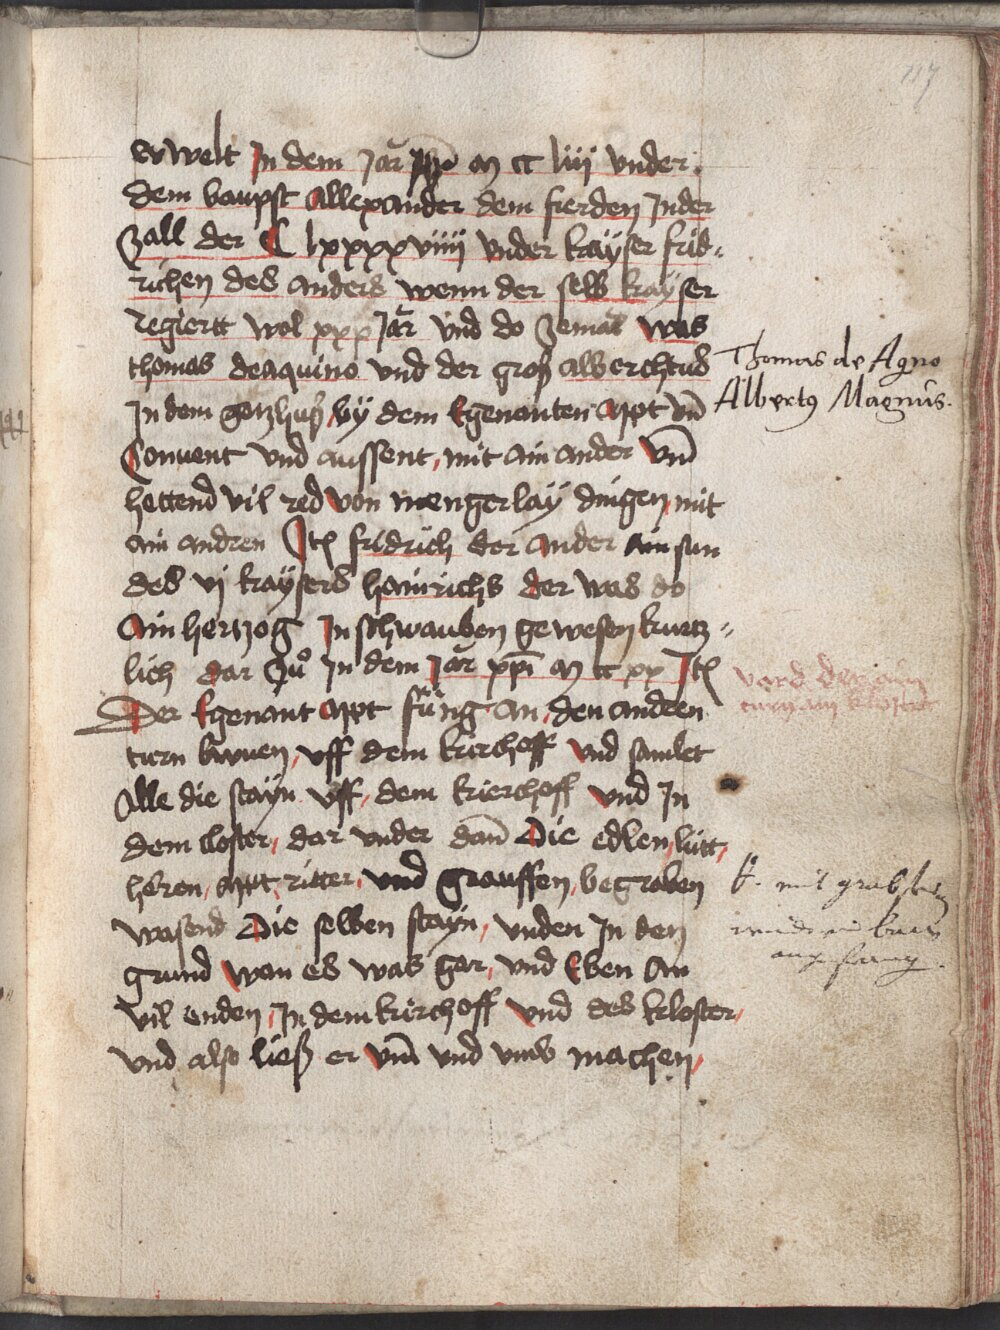 117
erwelt In dem Jar xpi m cc liiij vnder
dem baupst allexander dem fierden Inder
zall der C lxxxxviiij vnder kayser frid-
richen des anders wenn der selb kayser
regiertt wol xxx Jar vnd do zemal was
thomas deaquino vnd der groß alberchtus
In dem gotzhuß by dem Egenanten appt vnd
Conuent vnd aussent mit ain ander vnd
hettend vil red von mengerlay dingen mit
ain andren Ite fridrich der ander ain sun
des vj kaysers hainrichs der was do
Ain hertzog In schwauben gewesen kurtz-
lich dar zu In dem Jar xpi m cc xx Ite
Der Egenant appt füng an den andren
turn buwen vff dem kirchoff vnd samlet
Alle die stayn vff dem kierchoff vnd In
dem closter dar vnder dan Die edlen lütt
heren appt ritter vnd grauffen begraben
wasend Die selben stayn vnden In den
grund wan es was gar vnd Eben an
vil enden In dem kirchoff vnd des kloster
vnd also ließ er vm vnd vmb machen
Thomas de Aqno
Albertq Magnus.
mit grabstein